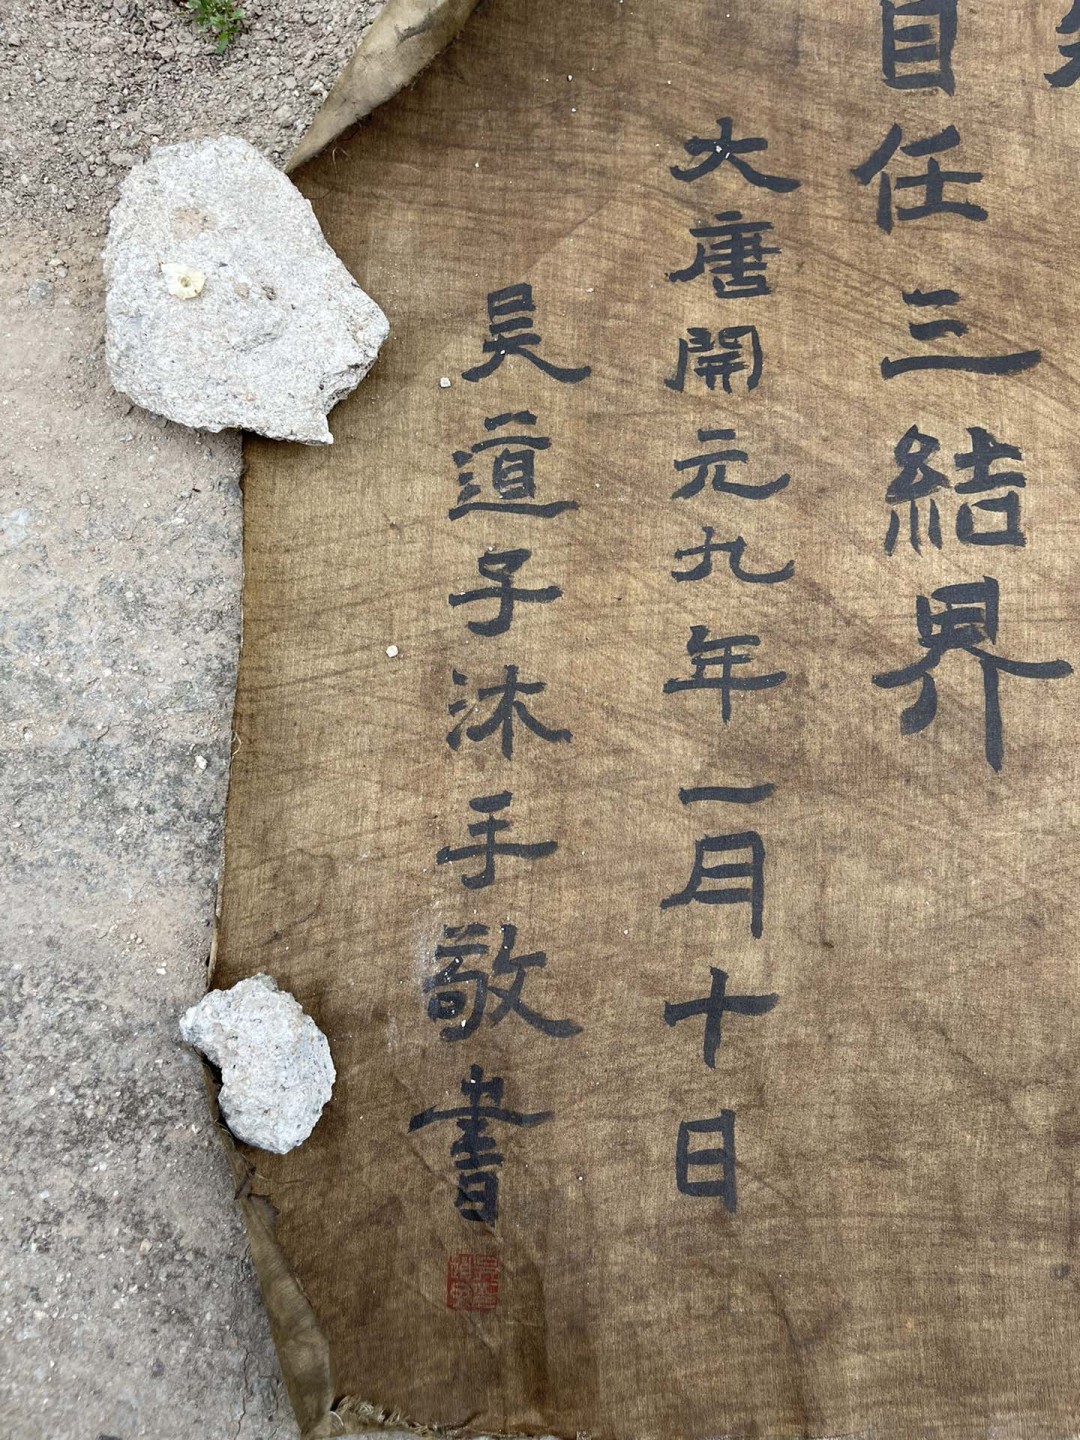 自任三結界
大唐開元九年一月十日
吳道子沐手敬書